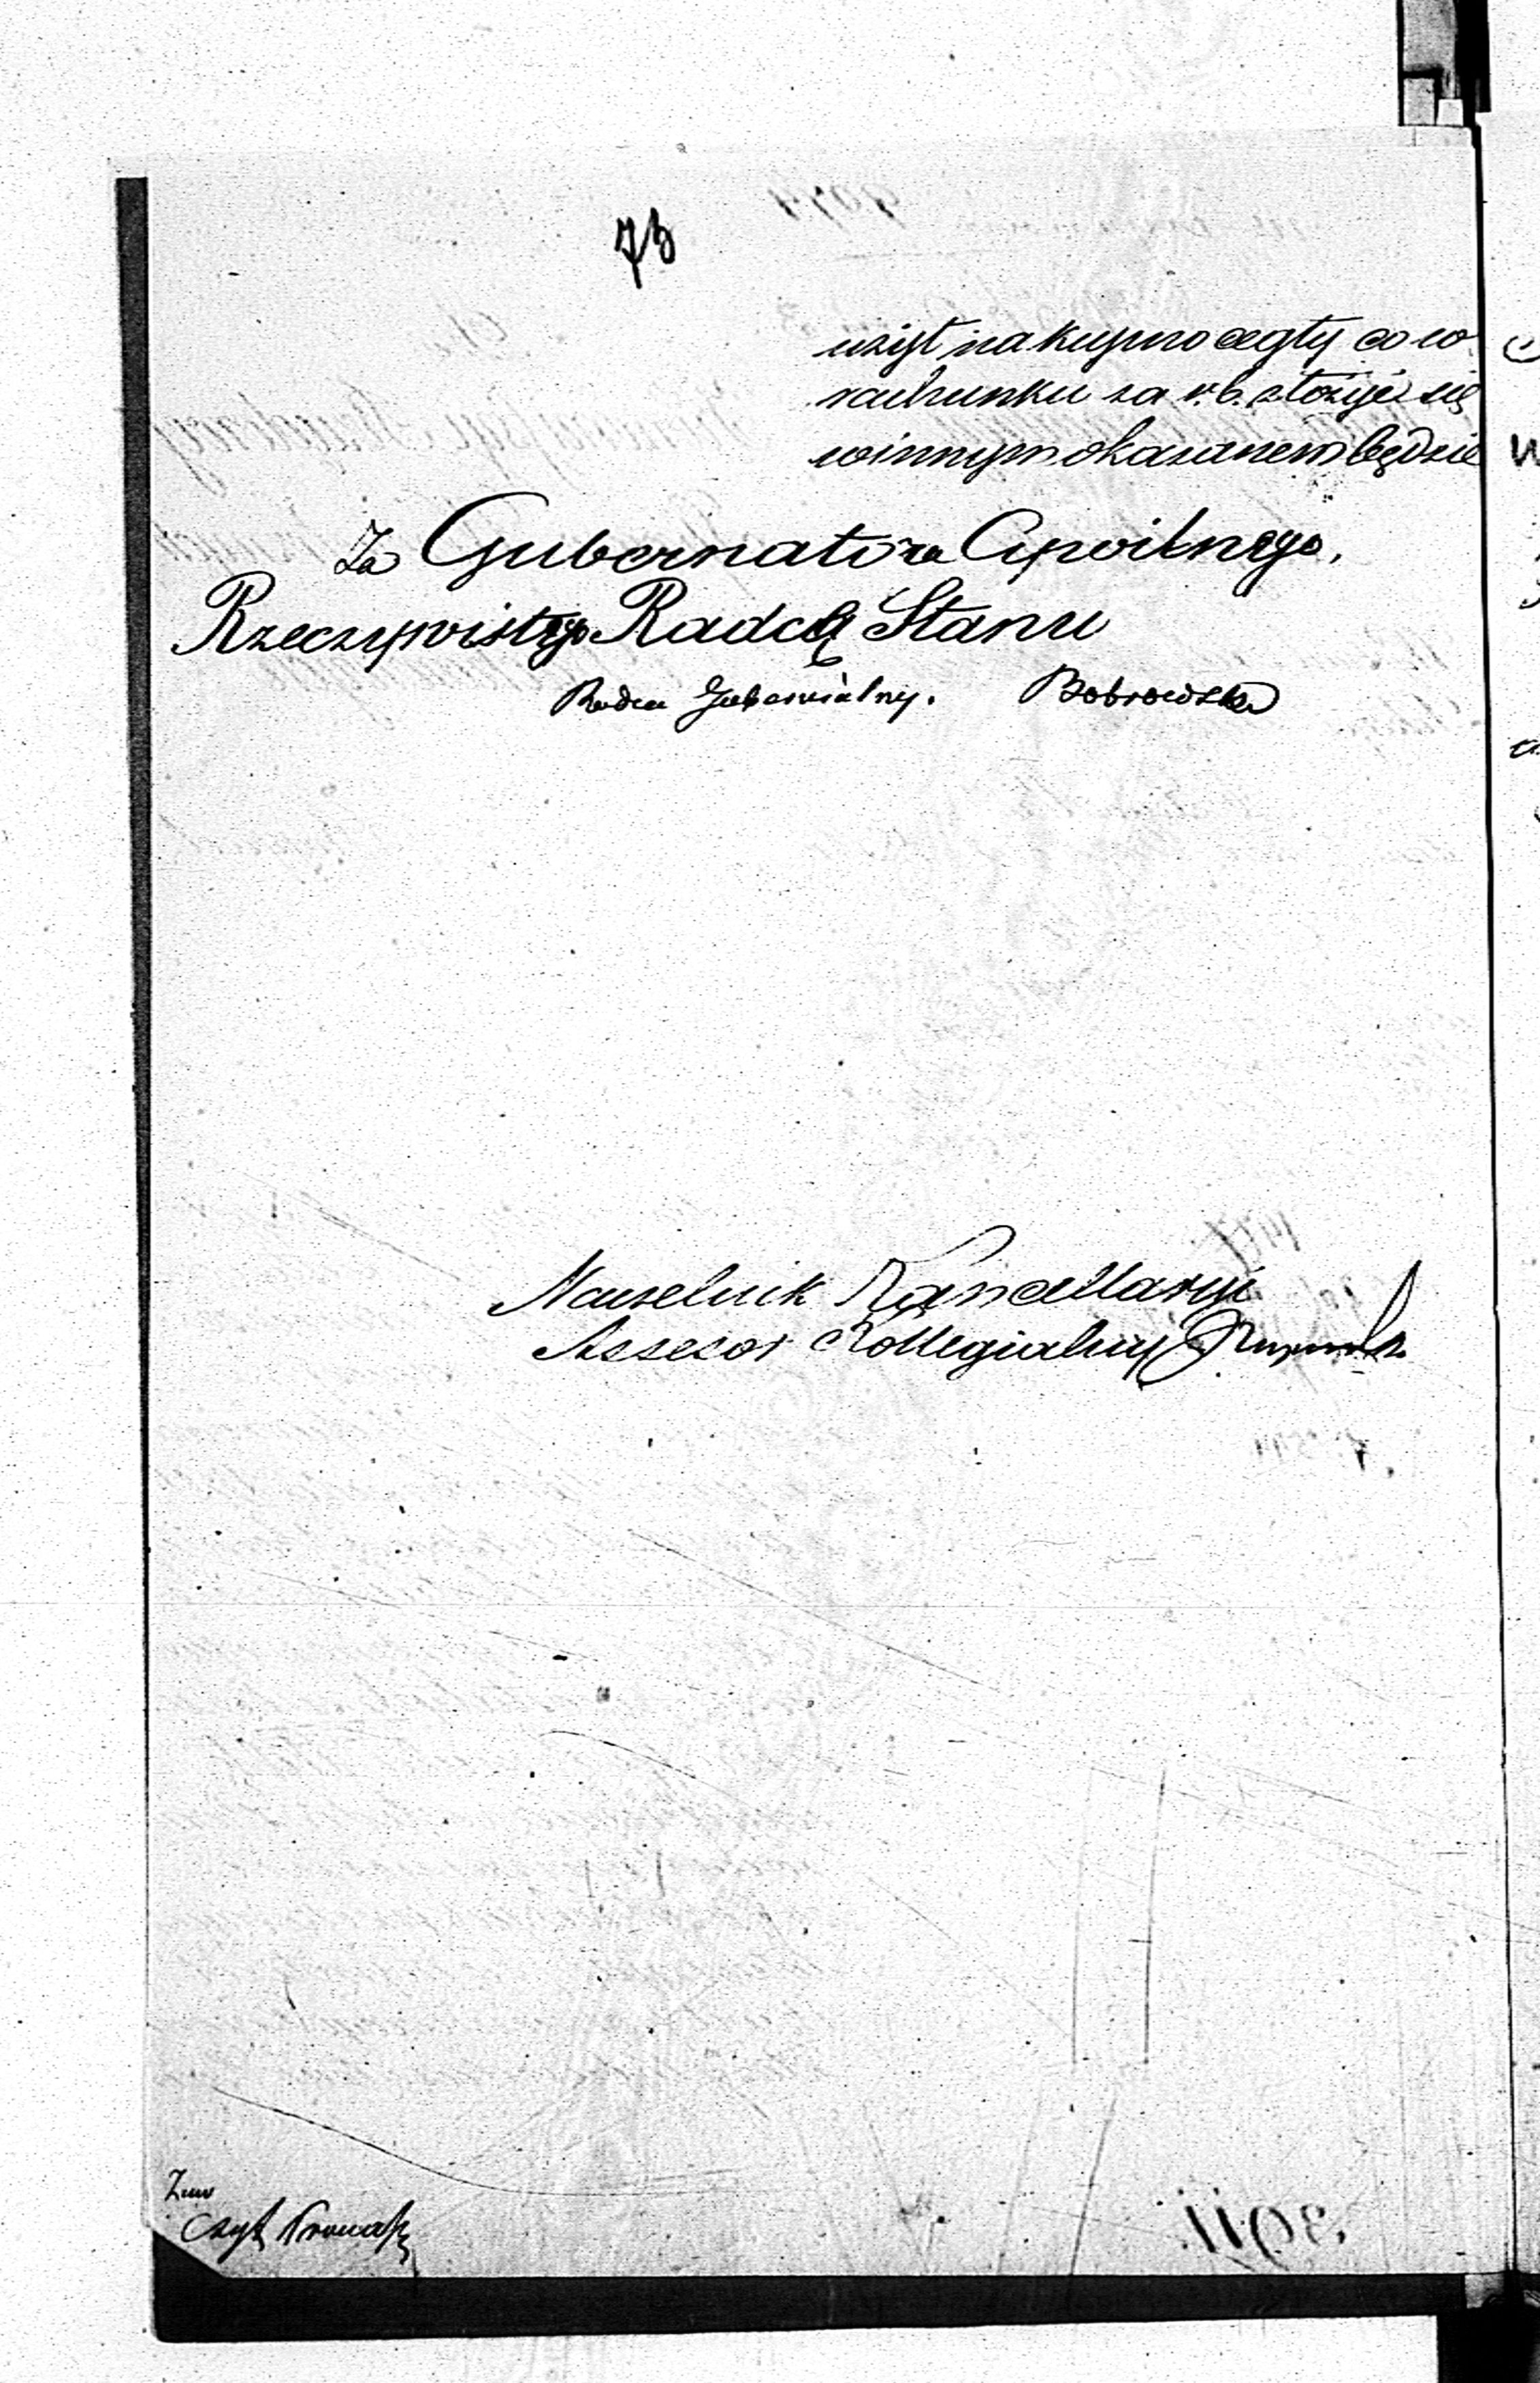 73
użyt na kupno cegły co w
rachunku za r. b. złożyć się
winnym okazanem będzie
Za Gubernatora Cywilnego,
Rzeczywistego Radcę Stanu
Radca Gubernialny. Bobrowski
Naczelnik Kancellaryi
Assesor Kollegialny